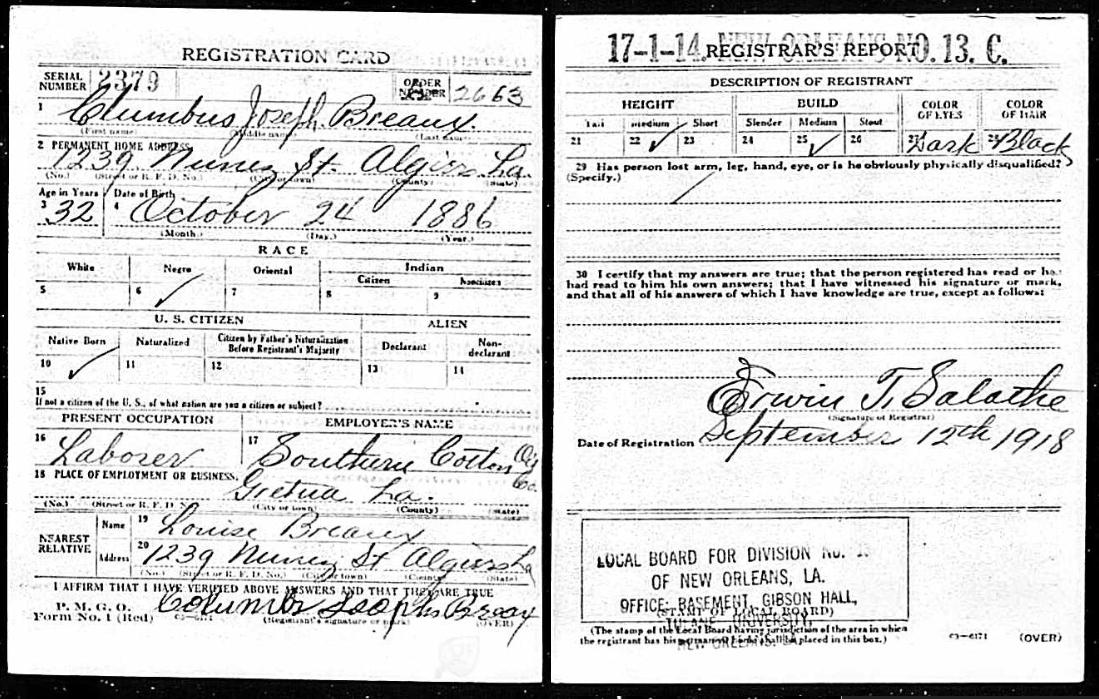 REGISTRATION CARD
SERIAL NUMBER 2379
ORDER NUMBER 2663
1 Clumbus Joseph Breaux.
(First name) (Middle name) (Last name)
2 PERMANENT HOME ADDRESS:
1239 Nunez St Algiers La.
(No.) (Street or R. F. D. No.) (City or town) (County) (State)
Age in Years Date of Birth
3 32 4 October 24 1886
(Month.) (Day.) (Year.)
RACE
White Negro Oriental Indian
Citizen Noncitizen
5 6 ✓ 7 8 9
U. S. CITIZEN ALIEN
Native Born Naturalized Citizen by Father's Naturalization Before Registrant's Majority Declarant Non-declarant
10 ✓ 11 12 13 14
15
If not a citizen of the U. S., of what nation are you a citizen or subject?
PRESENT OCCUPATION EMPLOYER'S NAME
16 Laborer 17 Southern Cotton Oil Co.
18 PLACE OF EMPLOYMENT OR BUSINESS:
Gretna La.
(No.) (Street or R. F. D. No.) (City or town) (County) (State)
NEAREST RELATIVE
Name 19 Louise Breaux
Address 20 1239 Nunez St Algiers La
(No.) (Street or R. F. D. No.) (City or town) (County) (State)
I AFFIRM THAT I HAVE VERIFIED ABOVE ANSWERS AND THAT THEY ARE TRUE
P. M. G. O.
Form No. 1 (Red) c3-6171 (Registrant's signature or mark) (OVER)
17-1-14. NEW ORLEANS NO. 13. C.
REGISTRAR'S REPORT
DESCRIPTION OF REGISTRANT
HEIGHT BUILD COLOR OF EYES COLOR OF HAIR
Tall Medium Short Slender Medium Stout
21 22 ✓ 23 24 25 ✓ 26 27 Dark 28 Black
29 Has person lost arm, leg, hand, eye, or is he obviously physically disqualified?
(Specify.)
30 I certify that my answers are true; that the person registered has read or has
had read to him his own answers; that I have witnessed his signature or mark,
and that all of his answers of which I have knowledge are true, except as follows:
Erwin T. Salathe
(Signature of Registrar)
Date of Registration September 12th 1918
LOCAL BOARD FOR DIVISION NO. 13
OF NEW ORLEANS, LA.
OFFICE: BASEMENT, GIBSON HALL,
(STAMP OF LOCAL BOARD)
TULANE UNIVERSITY,
(The stamp of the Local Board having jurisdiction of the area in which
the registrant has his permanent home shall be placed in this box.)
NEW ORLEANS, LA.
c3-6171 (OVER)